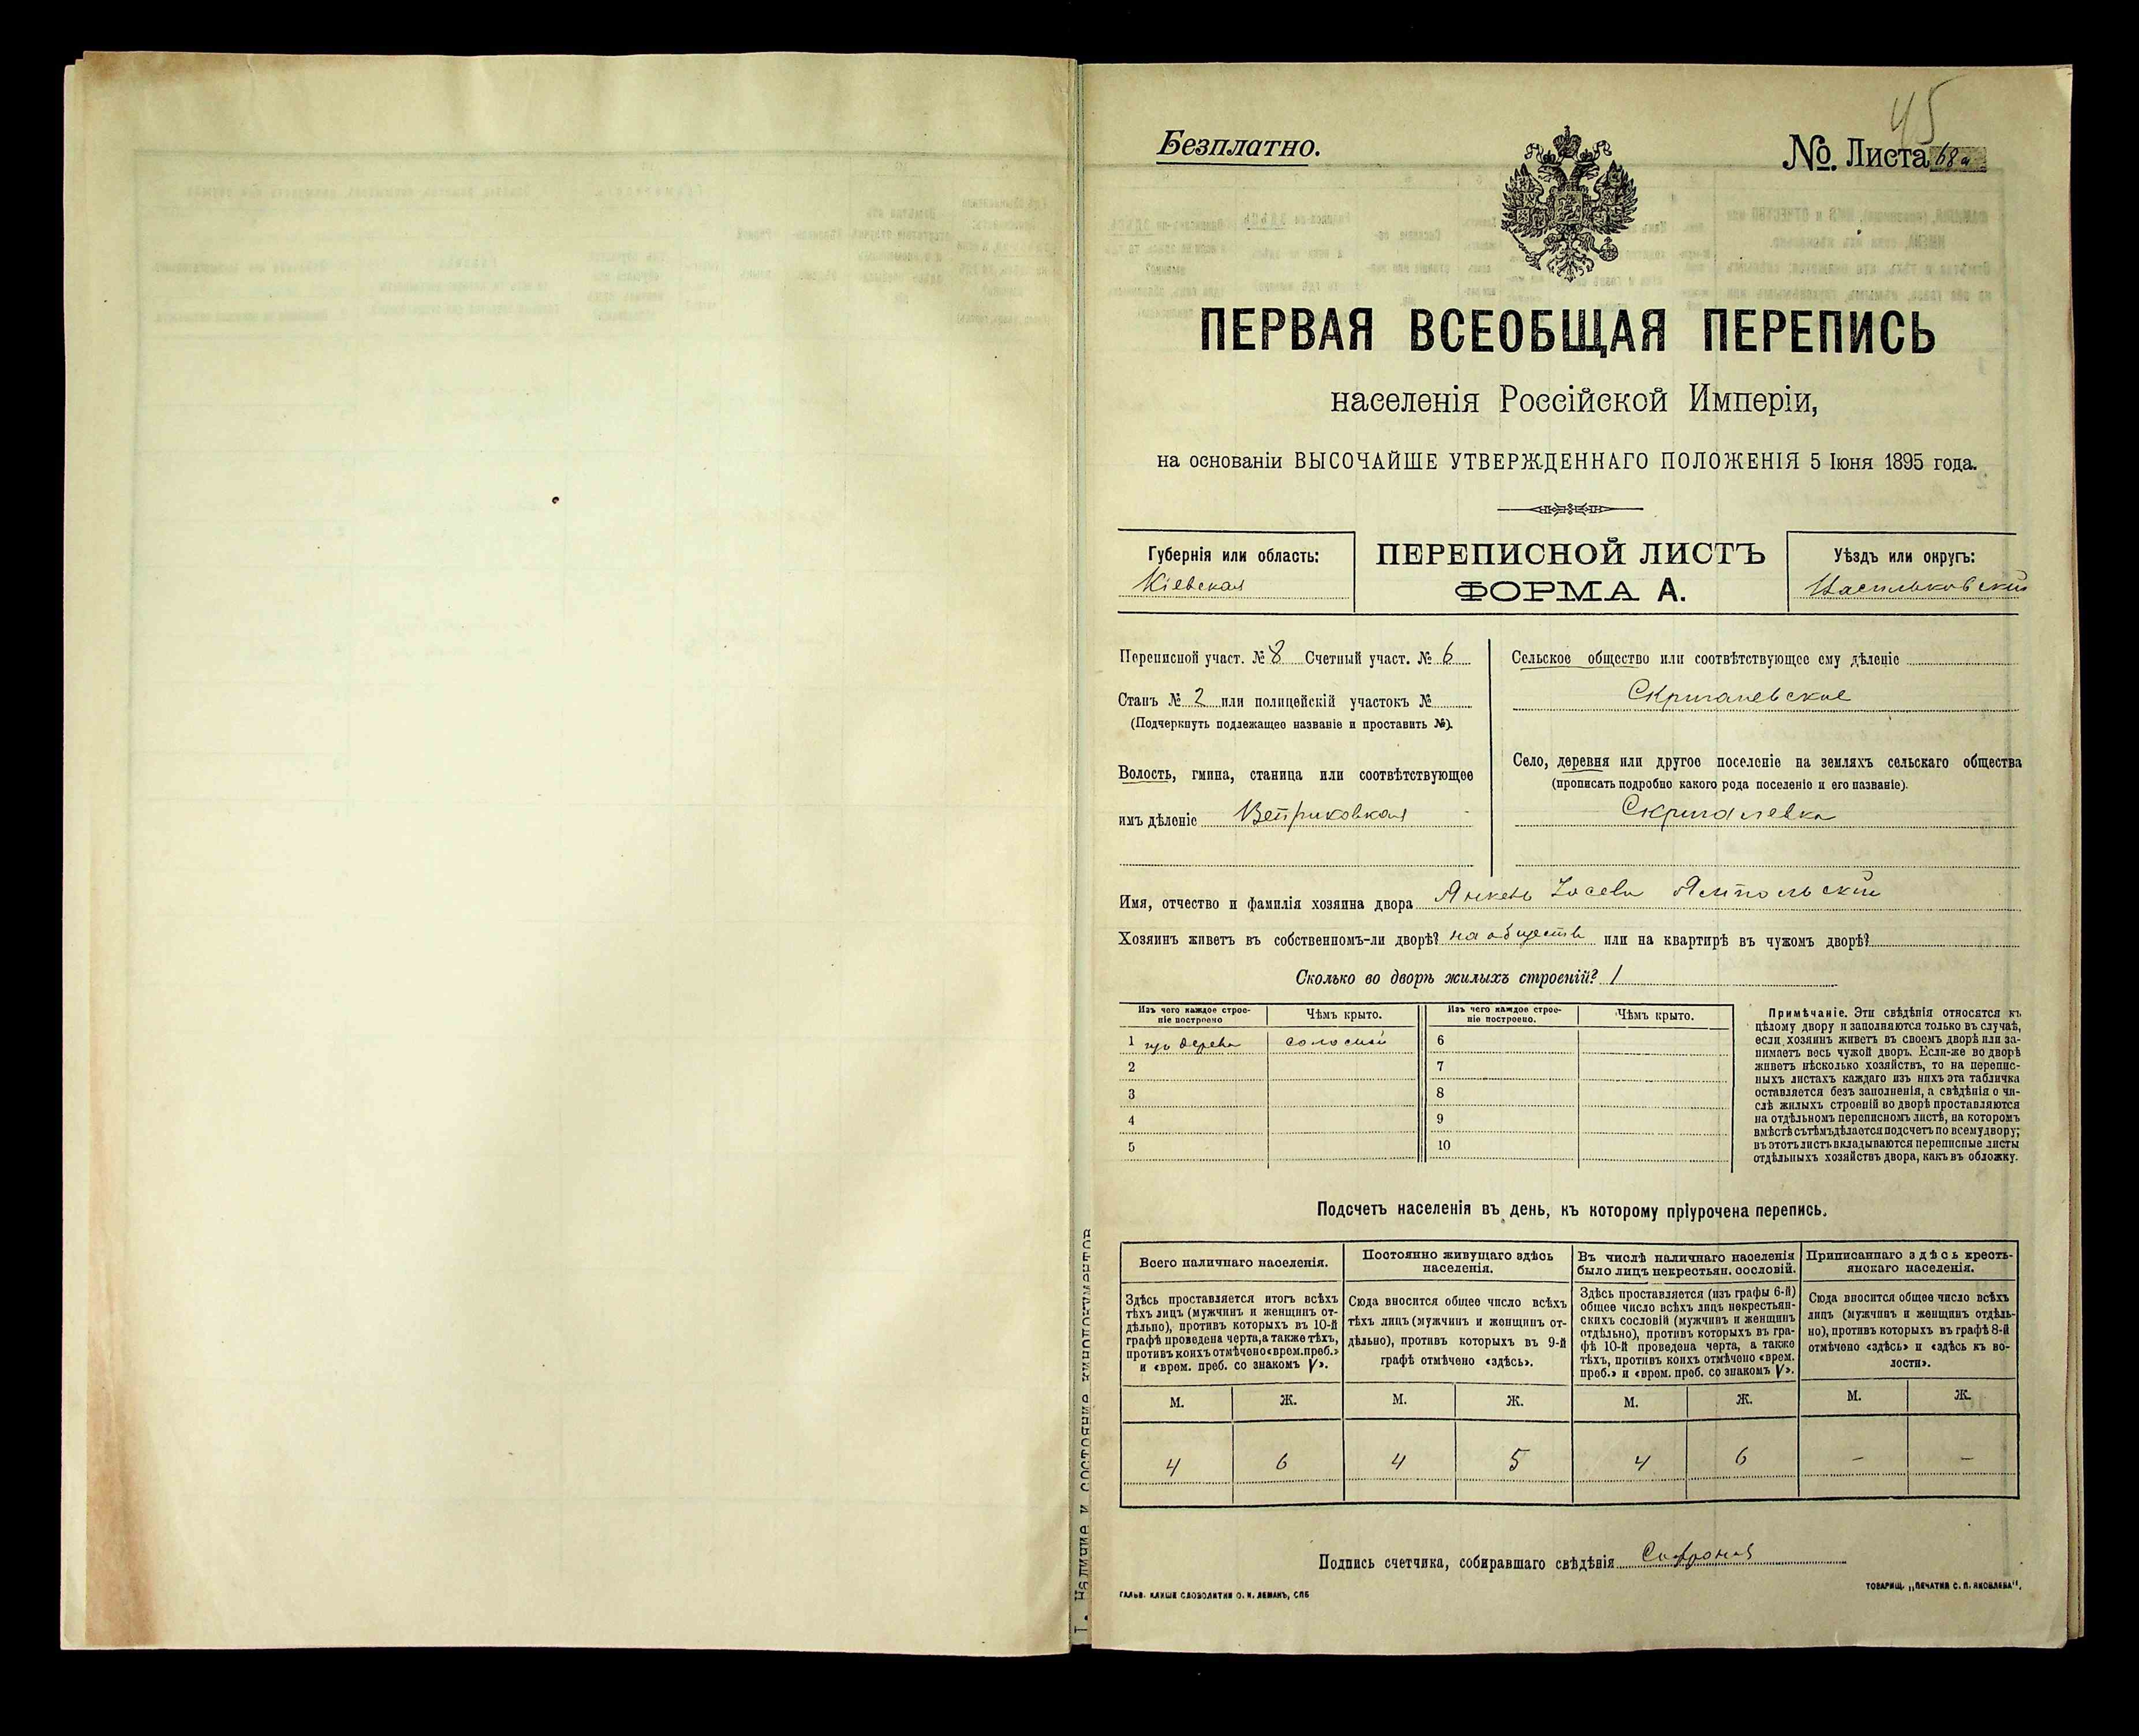 45
Безплатно.
№. Листа 68а
ПЕРВАЯ ВСЕОБЩАЯ ПЕРЕПИСЬ
населенія Россійской Имперіи,
на основаніи ВЫСОЧАЙШЕ УТВЕРЖДЕННАГО ПОЛОЖЕНІЯ 5 Іюня 1895 года.
Губернія или область:
Кіевская
ПЕРЕПИСНОЙ ЛИСТЪ
ФОРМА А.
Уѣздъ или округъ:
Васильковскій
Переписной участ. № 8 Счетный участ. № 6
Станъ № 2 или полицейскій участокъ №
(Подчеркнуть подлежащее названіе и проставить №).
Волость, гмина, станица или соотвѣтствующее
имъ дѣленіе Ветриковская
Сельское общество или соотвѣтствующее ему дѣленіе
Скригалевское
Село, деревня или другое поселеніе на земляхъ сельскаго общества
(прописать подробно какого рода поселеніе и его названіе).
Скригалевка
Имя, отчество и фамилія хозяина двора Янкель Іосевъ Ямпольскій
Хозяинъ живетъ въ собственномъ-ли дворѣ? на обществ или на квартирѣ въ чужомъ дворѣ?
Сколько во дворѣ жилыхъ строеній? 1
Изъ чего каждое строе-
ніе построено
Чѣмъ крыто.
Изъ чего каждое строе-
ніе построено.
Чѣмъ крыто.
1 изъ дерева соломой 6
2 7
3 8
4 9
5 10
Примѣчаніе. Эти свѣдѣнія относятся къ
цѣлому двору и заполняются только въ случаѣ,
если хозяинъ живетъ въ своемъ дворѣ или за-
нимаетъ весь чужой дворъ. Если-же во дворѣ
живетъ нѣсколько хозяйствъ, то на перепис-
ныхъ листахъ каждаго изъ нихъ эта табличка
оставляется безъ заполненія, а свѣдѣнія о чи-
слѣ жилыхъ строеній во дворѣ проставляются
на отдѣльномъ переписномъ листѣ, на которомъ
вмѣстѣ съ тѣмъ дѣлается подсчетъ по всему двору;
въ этотъ листъ вкладываются переписные листы
отдѣльныхъ хозяйствъ двора, какъ въ обложку.
Подсчетъ населенія въ день, къ которому пріурочена перепись.
Всего наличнаго населенія.
Здѣсь проставляется итогъ всѣхъ
тѣхъ лицъ (мужчинъ и женщинъ от-
дѣльно), противъ которыхъ въ 10-й
графѣ проведена черта, а также тѣхъ,
противъ коихъ отмѣчено «врем. преб.»
и «врем. преб. со знакомъ V».
Постоянно живущаго здѣсь
населенія.
Сюда вносится общее число всѣхъ
тѣхъ лицъ (мужчинъ и женщинъ от-
дѣльно), противъ которыхъ въ 9-й
графѣ отмѣчено «здѣсь».
Въ числѣ наличнаго населенія
было лицъ некрестьян. сословій.
Здѣсь проставляется (изъ графы 6-й)
общее число всѣхъ лицъ некрестьян-
скихъ сословій (мужчинъ и женщинъ
отдѣльно), противъ которыхъ въ гра-
фѣ 10-й проведена черта, а также
тѣхъ, противъ коихъ отмѣчено «врем.
преб.» и «врем. преб. со знакомъ V».
Приписаннаго здѣсь кресть-
янскаго населенія.
Сюда вносится общее число всѣхъ
лицъ (мужчинъ и женщинъ отдѣль-
но), противъ которыхъ въ графѣ 8-й
отмѣчено «здѣсь» и «здѣсь къ во-
лости».
М. Ж. М. Ж. М. Ж. М. Ж.
4 6 4 5 4 6 – –
Подпись счетчика, собиравшаго свѣдѣнія
ГАЛЬВ. КЛИШЕ СЛОВОЛИТНИ О. И. ЛЕМАНЪ, СПБ
ТОВАРИЩ. „ПЕЧАТНЯ С. П. ЯКОВЛЕВА“.
Наличие и состояние кинодокументов